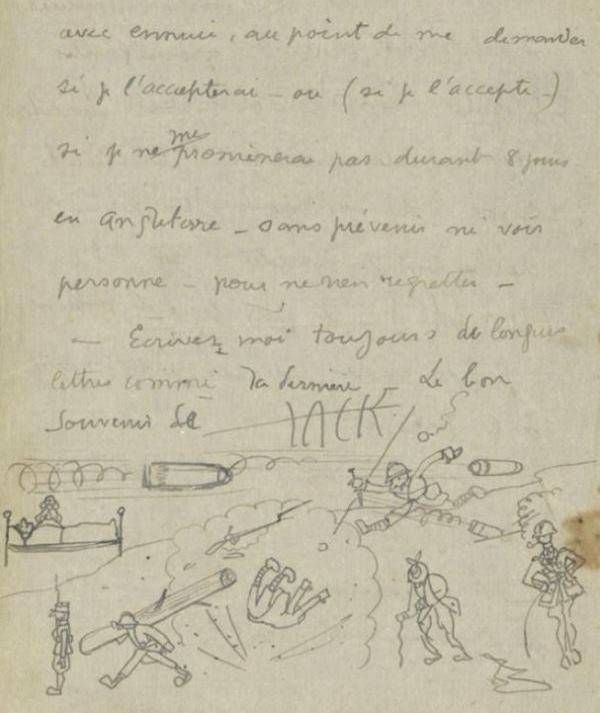 avec ennui, au point de me demander
si je l'accepterai - ou (si je l'accepte -)
si je ne me promènerai pas durant 8 jours
en Angleterre - sans prévenir ni voir
personne - pour ne rien regretter -
- Ecrivez moi toujours de longues
lettres comme la dernière - Le bon
souvenir de JACK